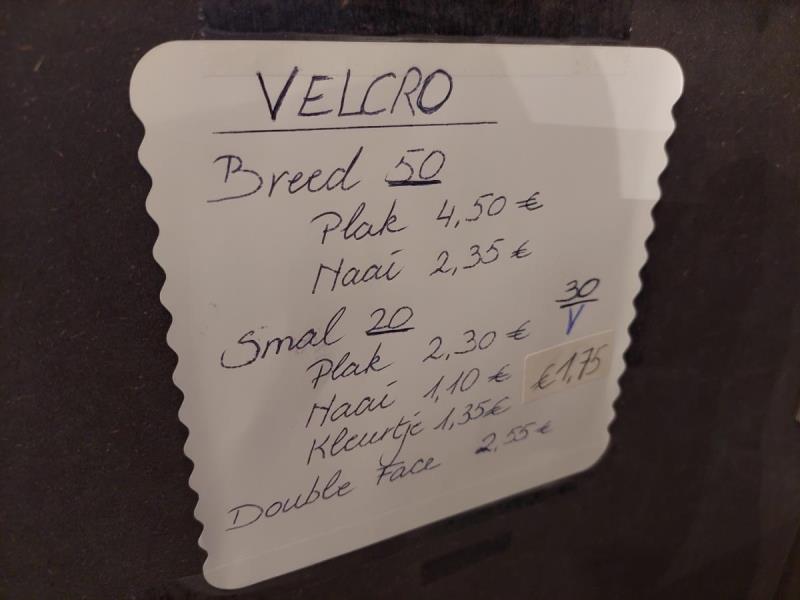 VELCRO
Breed 50
Plak 4,50 €
Naai 2,35 €
Smal 20
30
V
Plak 2,30 €
Naai 1,10 €
€1,75
Kleurtje 1,35€
Double Face 2,55 €